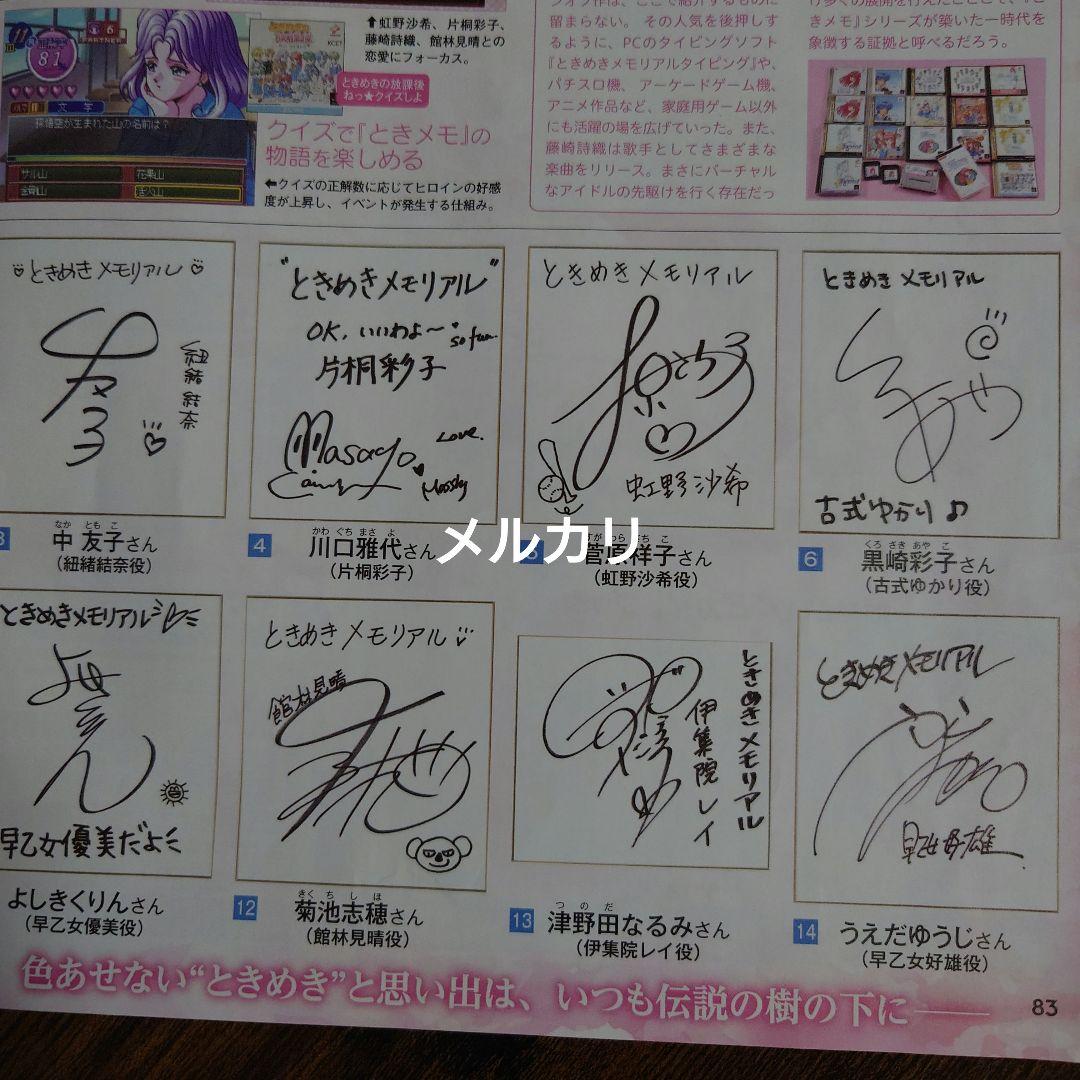 ⬆虹野沙希、片桐彩子、
藤崎詩織、館林見晴との
恋愛にフォーカス。
ときめきの放課後
ねっ★クイズしよ
クイズで『ときメモ』の
物語を楽しめる
⬅クイズの正解数に応じてヒロインの好感
度が上昇し、イベントが発生する仕組み。
81
文学
孫悟空が生まれた山の名前は?
サル山
花果山
活火山
留まらない。その人気を後押しす
るように、PCのタイピングソフト
『ときめきメモリアルタイピング』や、
パチスロ機、アーケードゲーム機、
アニメ作品など、家庭用ゲーム以外
にも活躍の場を広げていった。また、
藤崎詩織は歌手としてさまざまな
楽曲をリリース。まさにバーチャル
なアイドルの先駆けを行く存在だっ
きメモ』シリーズが築いた一時代を
象徴する証拠と呼べるだろう。
ときめきメモリアル
紐緒結奈
中 友子さん
なか ともこ
(紐緒結奈役)
"ときめきメモリアル"
OK, いいわよ〜
so fun.
片桐彩子
Masayo
Love.
4
川口雅代さん
かわぐちまさよ
(片桐彩子)
ときめきメモリアル
虹野沙希
菅原祥子さん
(虹野沙希役)
ときめきメモリアル
古式ゆかり♪
6
黒崎彩子さん
くろさきあやこ
(古式ゆかり役)
メルカリ
ときめきメモリアル
早乙女優美だよ
よしきくりんさん
(早乙女優美役)
ときめきメモリアル
館林見晴
12
菊池志穂さん
きくちしほ
(館林見晴役)
ときめきメモリアル
伊集院レイ
13
津野田なるみさん
つのだ
(伊集院レイ役)
ときめきメモリアル
早乙女好雄
14
うえだゆうじさん
(早乙女好雄役)
色あせない"ときめき"と思い出は、いつも伝説の樹の下に——
83